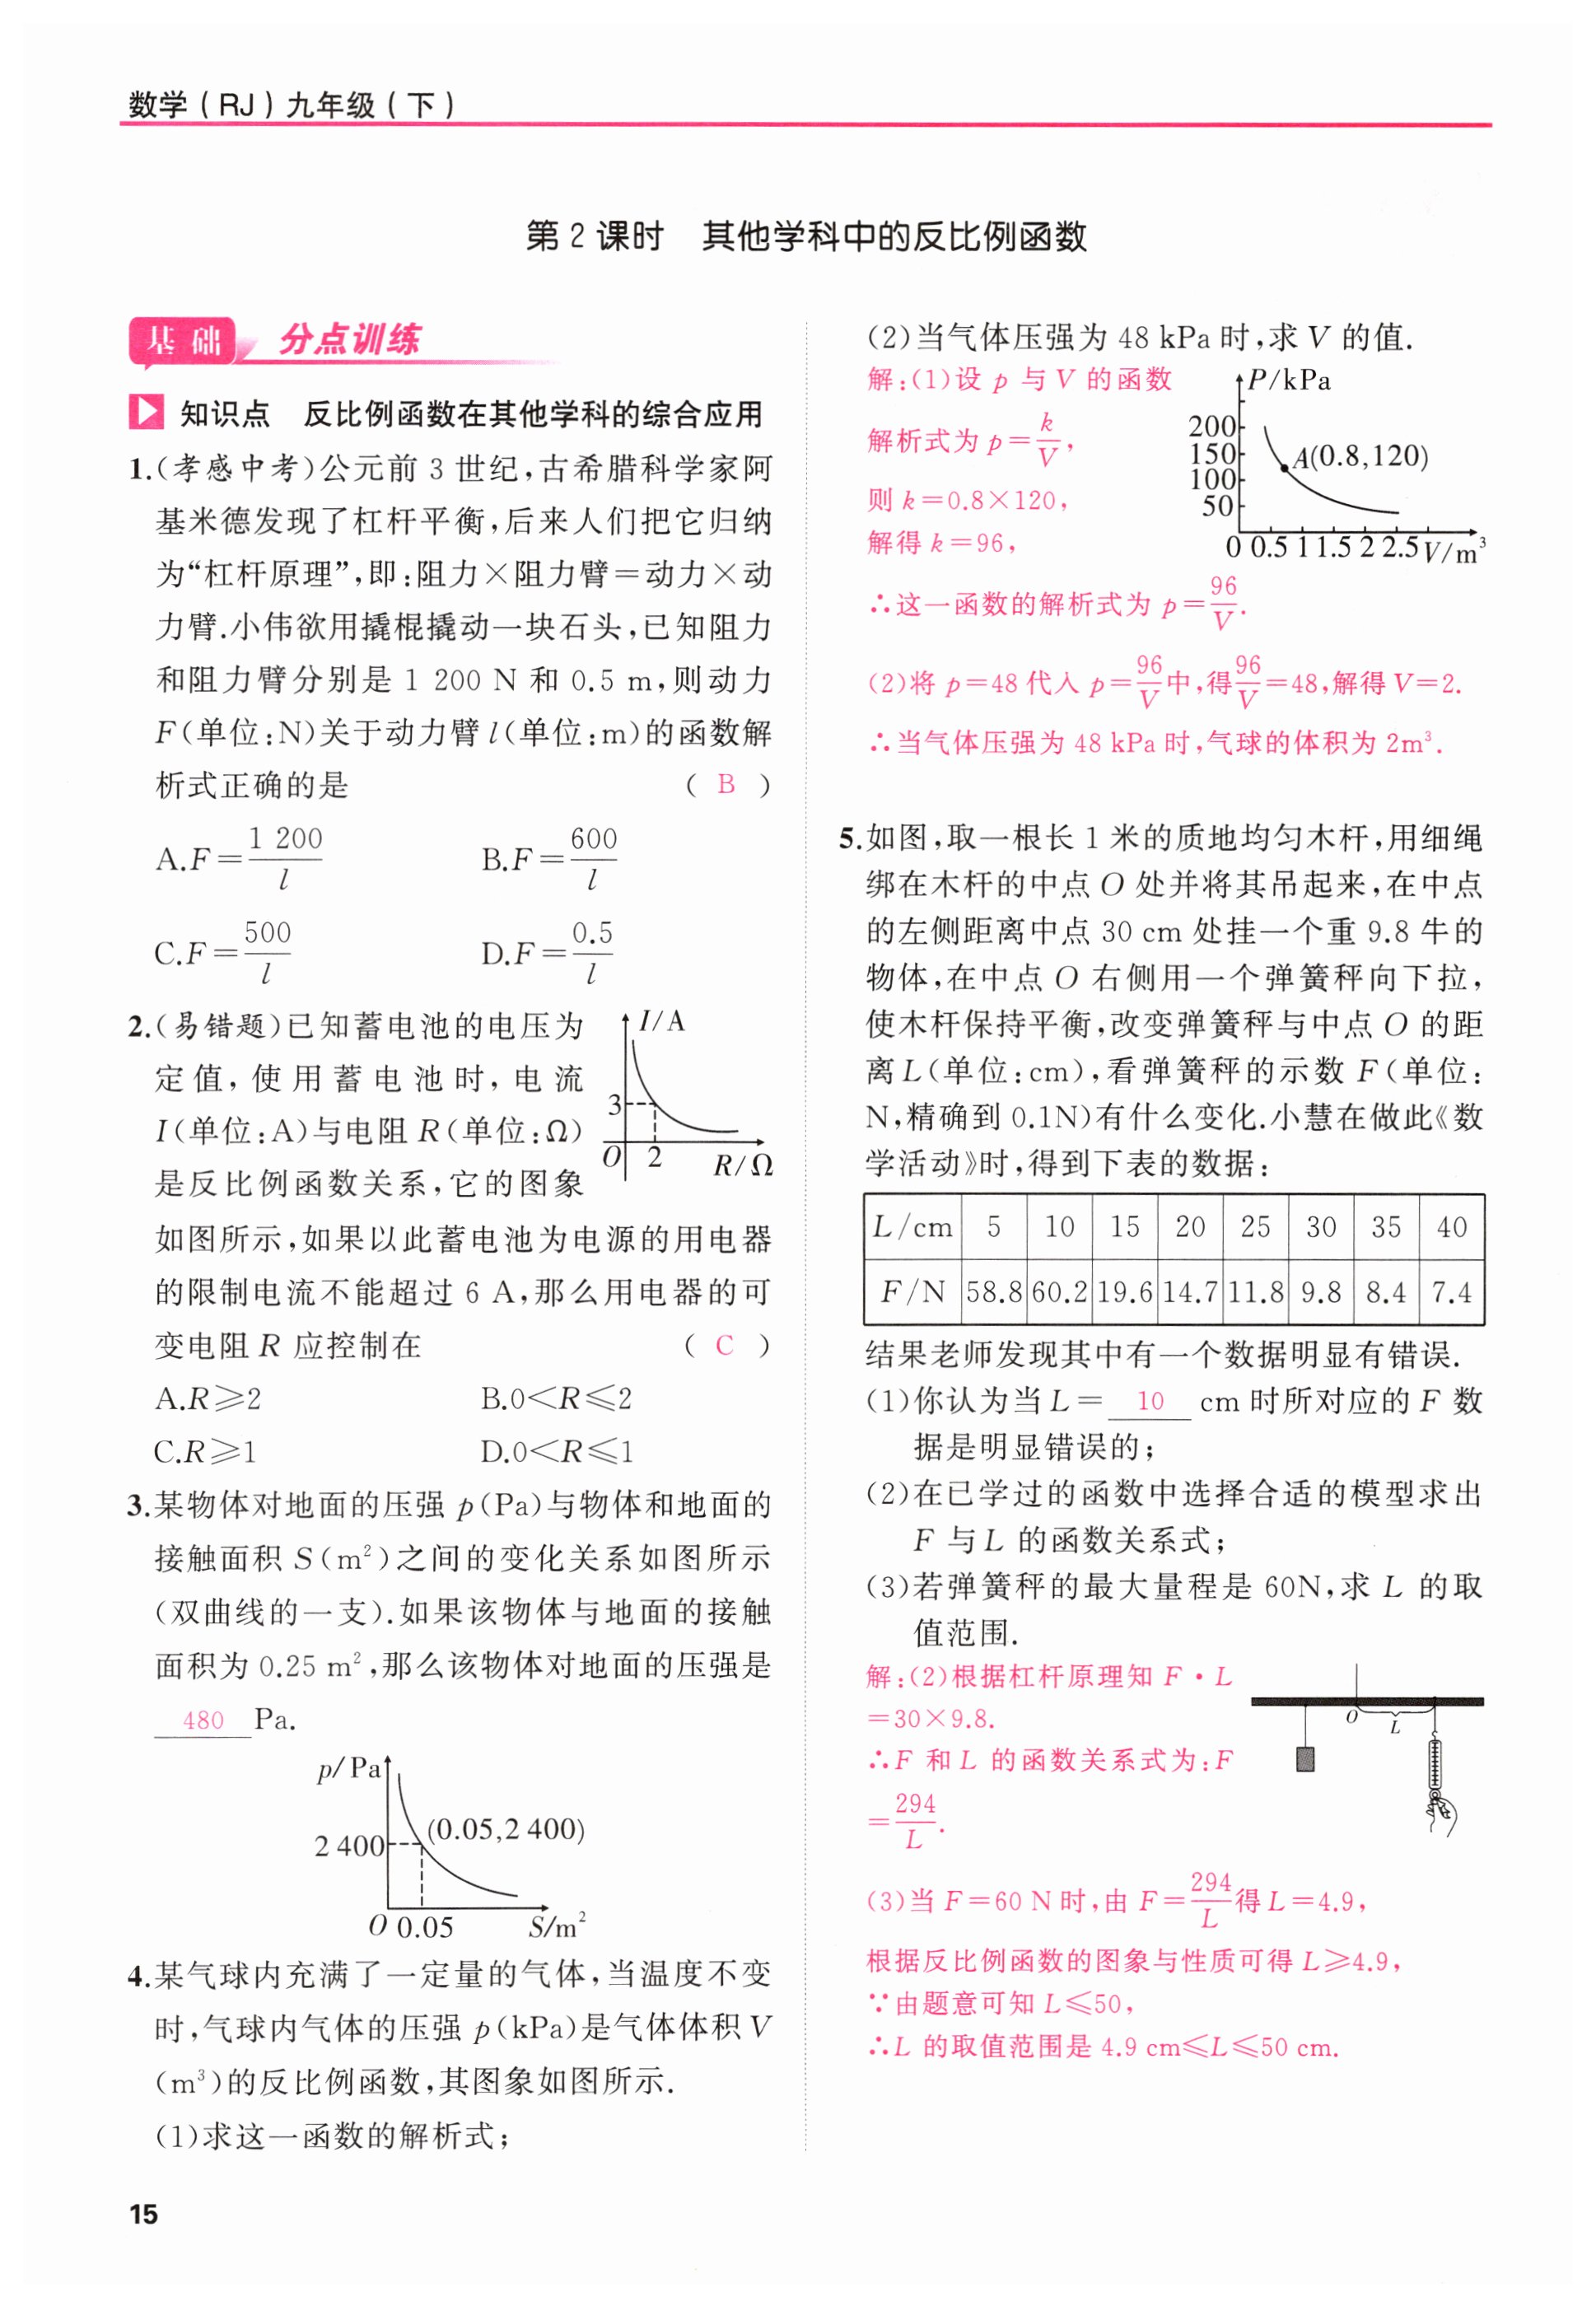 数学(RJ)九年级(下)
第2课时 其他学科中的反比例函数
基础 分点训练
知识点 反比例函数在其他学科的综合应用
1.(孝感中考)公元前3世纪,古希腊科学家阿
基米德发现了杠杆平衡,后来人们把它归纳
为“杠杆原理”,即:阻力×阻力臂=动力×动
力臂.小伟欲用撬棍撬动一块石头,已知阻力
和阻力臂分别是 1 200 N 和 0.5 m,则动力
F(单位:N)关于动力臂 l(单位:m)的函数解
析式正确的是 ( B )
A.F=1 200/l B.F=600/l
C.F=500/l D.F=0.5/l
2.(易错题)已知蓄电池的电压为
定值,使用蓄电池时,电流
I(单位:A)与电阻R(单位:Ω)
是反比例函数关系,它的图象
如图所示,如果以此蓄电池为电源的用电器
的限制电流不能超过 6 A,那么用电器的可
变电阻 R 应控制在 ( C )
I/A
3
O 2 R/Ω
A.R⩾2 B.0<R⩽2
C.R⩾1 D.0<R⩽1
3.某物体对地面的压强 p(Pa)与物体和地面的
接触面积 S(m²)之间的变化关系如图所示
(双曲线的一支).如果该物体与地面的接触
面积为 0.25 m²,那么该物体对地面的压强是
480 Pa.
p/Pa
2 400 (0.05,2 400)
O 0.05 S/m²
4.某气球内充满了一定量的气体,当温度不变
时,气球内气体的压强 p(kPa)是气体体积V
(m³)的反比例函数,其图象如图所示.
(1)求这一函数的解析式;
15
(2)当气体压强为 48 kPa时,求 V 的值.
解:(1)设 p 与 V 的函数
解析式为 p=k/V,
则 k=0.8×120,
解得 k=96,
∴这一函数的解析式为 p=96/V.
P/kPa
200
150 A(0.8,120)
100
50
0 0.5 1 1.5 2 2.5 V/m³
(2)将 p=48代入 p=96/V中,得96/V=48,解得V=2.
∴当气体压强为 48 kPa时,气球的体积为 2m³.
5.如图,取一根长1米的质地均匀木杆,用细绳
绑在木杆的中点 O 处并将其吊起来,在中点
的左侧距离中点 30 cm 处挂一个重 9.8 牛的
物体,在中点 O 右侧用一个弹簧秤向下拉,
使木杆保持平衡,改变弹簧秤与中点 O 的距
离L(单位:cm),看弹簧秤的示数 F(单位:
N,精确到0.1N)有什么变化.小慧在做此《数
学活动》时,得到下表的数据:
L/cm 5 10 15 20 25 30 35 40
F/N 58.8 60.2 19.6 14.7 11.8 9.8 8.4 7.4
结果老师发现其中有一个数据明显有错误.
(1)你认为当L= 10 cm时所对应的 F 数
据是明显错误的;
(2)在已学过的函数中选择合适的模型求出
F 与L 的函数关系式;
(3)若弹簧秤的最大量程是 60N,求 L 的取
值范围.
解:(2)根据杠杆原理知 F·L
=30×9.8.
∴F 和L 的函数关系式为:F
=294/L.
O L
(3)当 F=60 N时,由 F=294/L得L=4.9,
根据反比例函数的图象与性质可得 L⩾4.9,
∵由题意可知 L⩽50,
∴L 的取值范围是 4.9 cm⩽L⩽50 cm.